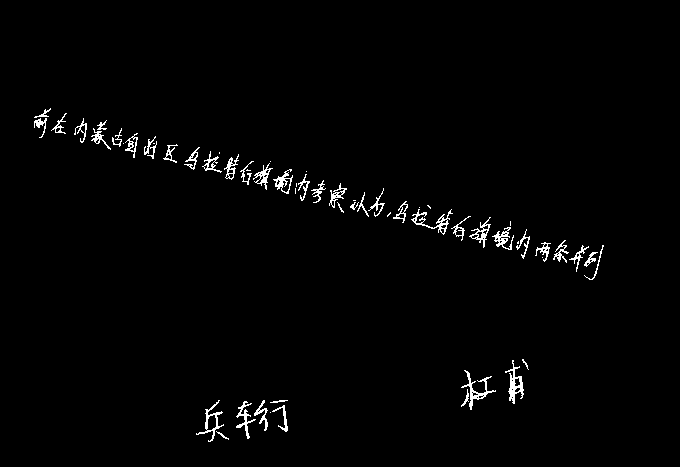 前在内蒙古自治区乌拉特后旗境内考察认为,乌拉特后旗境内两条并列
兵车行
杜甫